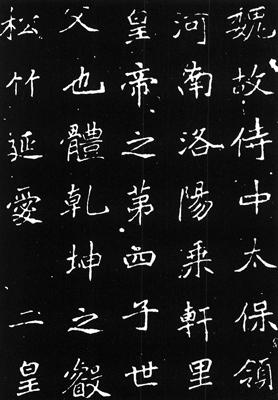 魏故侍中太保領
河南洛陽乘軒里
皇帝之第四子世
父也體乾坤之叡
松竹延愛二皇